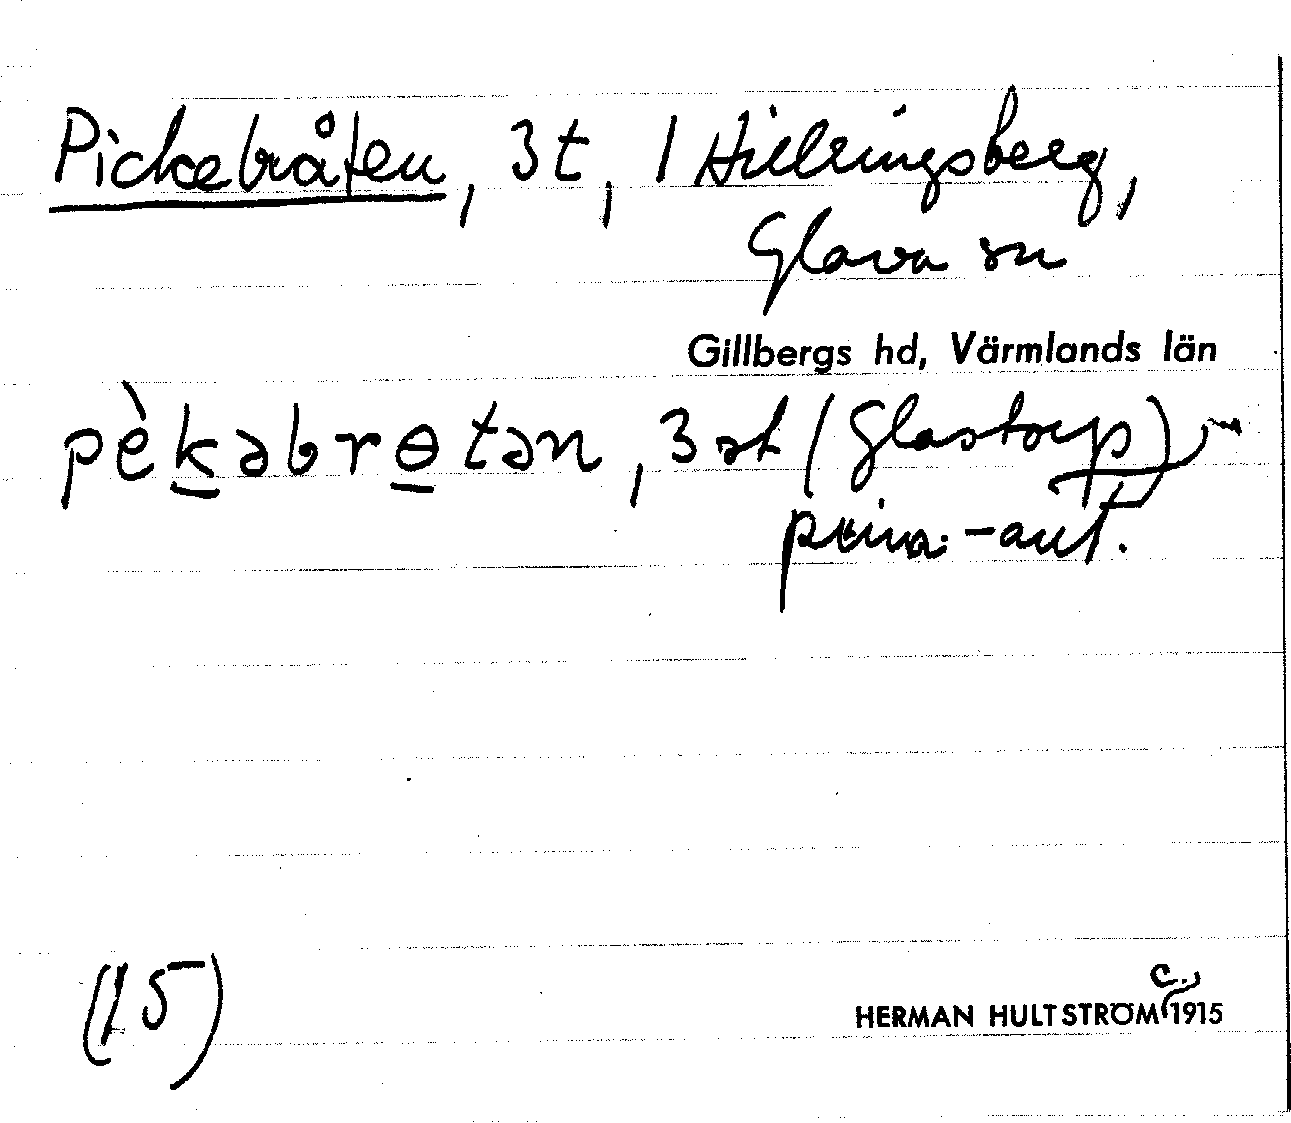 Pickebråten, 3 t, 1 Hillringsberg,
Glava sn
Gillbergs hd, Värmlands län
pèk̲əbrɵ̲tən, 3 st (Glastorp)
priv.-ant.
(15)
c.
HERMAN HULTSTRÖM 1915